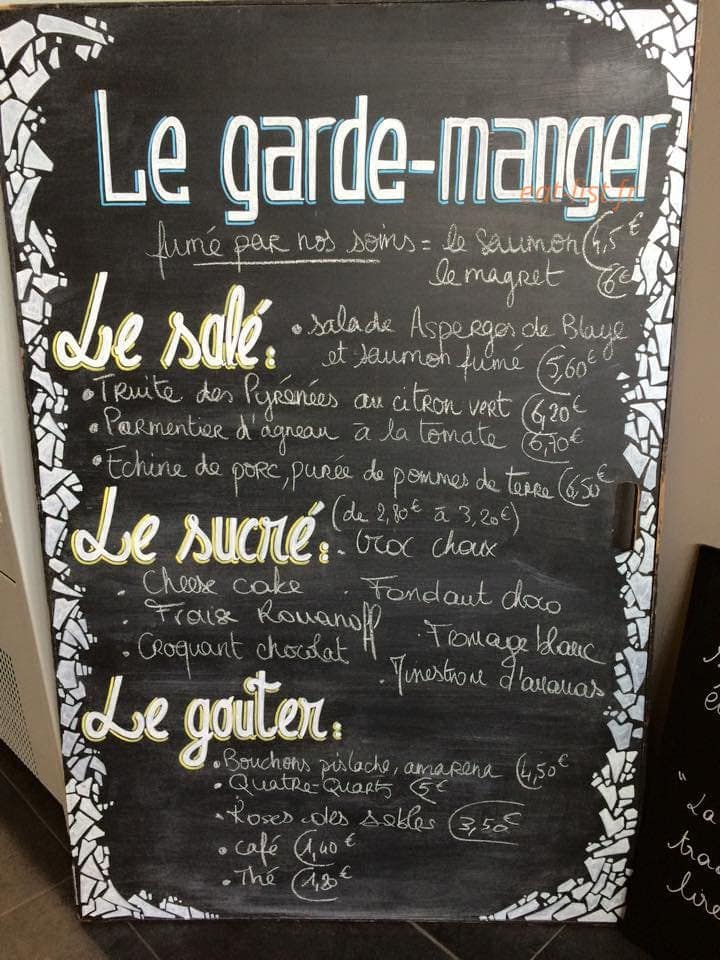 Le garde-manger
eat-list.fr
fumé par nos soins = le saumon 4,5€
le magret 6€
Le salé:
• salade Asperges de Blaye
et saumon fumé 5,60€
• Truite des Pyrénées au citron vert 6,20€
• Parmentier d'agneau à la tomate 6,70€
• Echine de porc, purée de pommes de terre 6,50€
Le sucré: (de 2,80€ à 3,20€)
- Croc choux
. Cheese cake
. Fondant choco
. Frais Romanoff
. Fromage blanc
. Croquant chocolat
. Minestrone d'ananas
Le goûter:
• Bouchons pistache, amarena 4,50€
• Quatre-Quarts 5€
• Roses des sables 3,50€
• café 1,40€
• Thé 1,80€
"La
lire